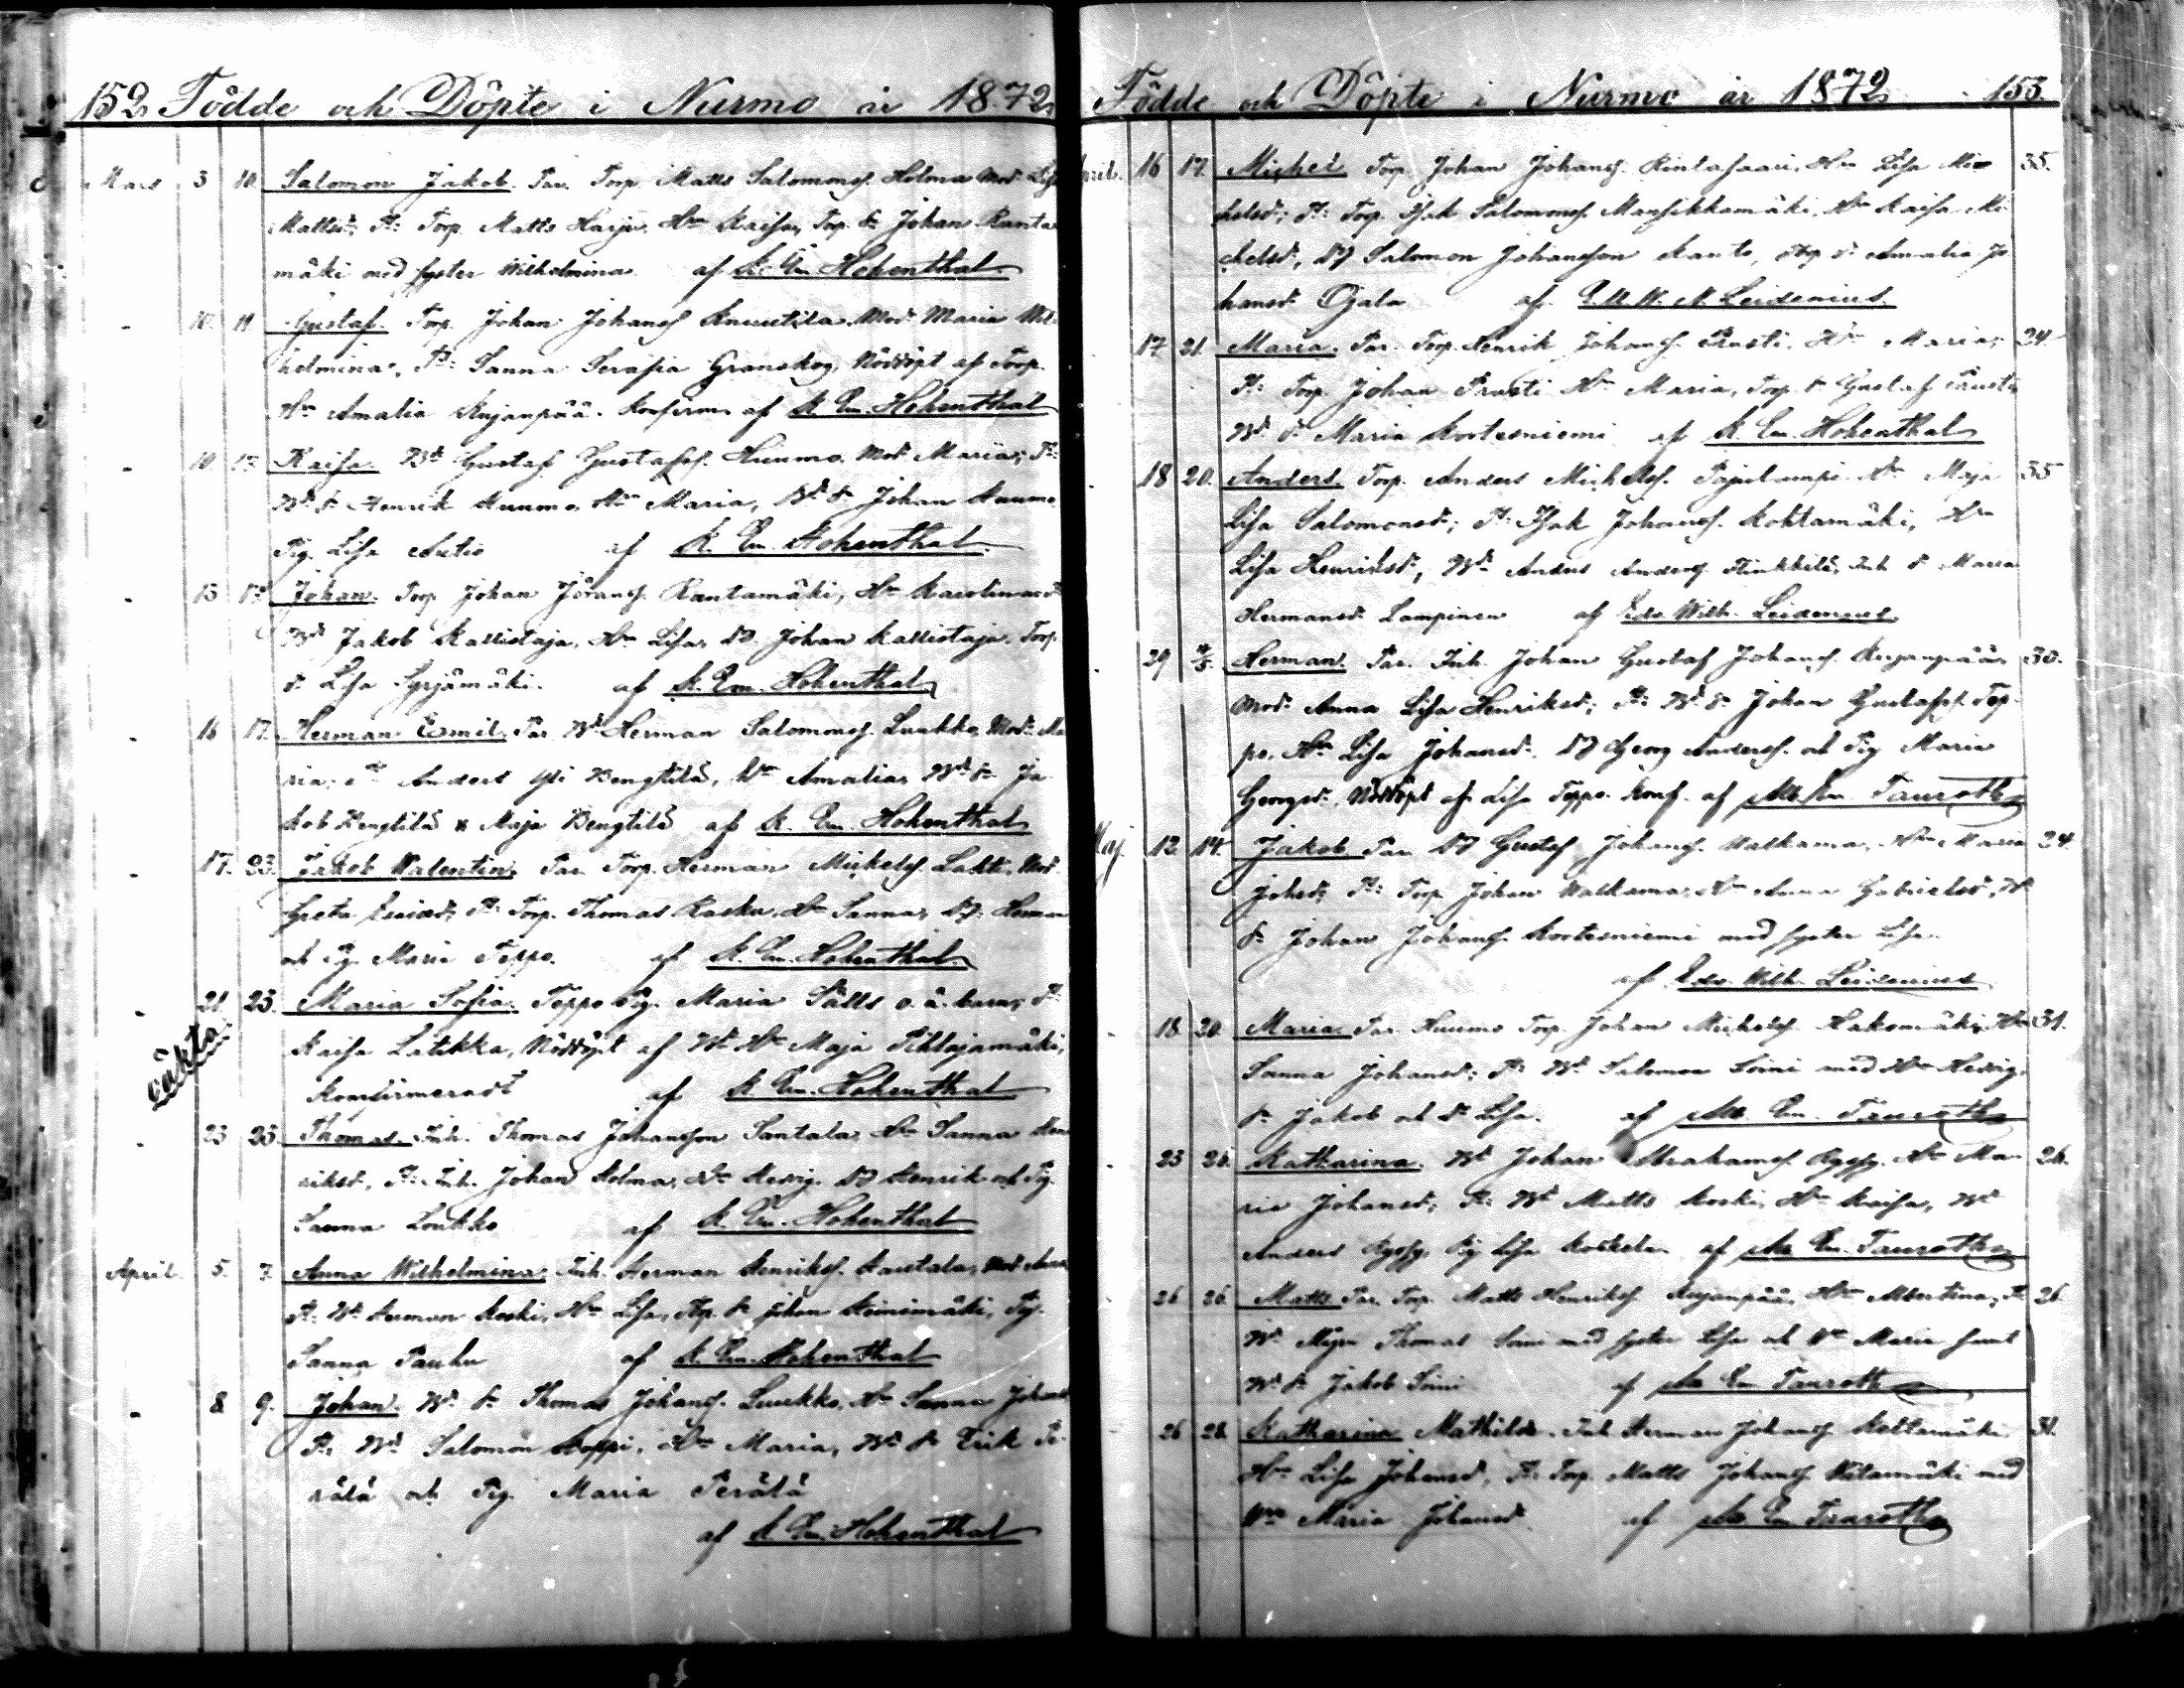 152. Födde och Döpte i Nurmo år 1872.
Mars 3 10. Salomon Jakob. Far. Torp. Matts Salomonss. Holma Mod. Lisa
Mattsd; Ft: Torp. Matts Harju, Hu Kaisa, Torp. S. Johan Ranta
mäki med syster Wilhelmina af K. Em. Hohenthal
- 10. 11 Gustaf. Torp. Johan Johanss Knuutila. Mod. Maria Wil-
helmina, Ft: Sanna Serafia Granskog, Nöddöpt af Torp.
Hu Amalia Kujanpää. Konferm. af K. Em. Hohenthal
- 10 17. Kaisa. Bd Gustaf Gustafss. Huumo. Mod. Maria; Ft:
Bd S. Henrik Huumo, Hu Maria, Bd S. Johan Huumo
Pig. Lisa Autio af K. Em. Hohenthal.
- 15 17. Johan. Torp Johan Johanss. Rantamäki, Hu Karolina; Ft
Bd Jakob Kalliotaja, Hu Lisa, Dr. Johan Kalliotaja, Torp.
d. Lisa Syrjämäki. af K. Em. Hohenthal
- 16 17. Herman Esmil. Far Bd Herman Salomonss. Luukko, Mod. Ma
ria; Ft Anders Yli Bengtilä, Hu Amalia, Bd S. Ja-
kob Bengtilä & Maja Bengtilä af K. Em. Hohenthal
- 17. 23. Jakob Walentin. Far Torp. Herman Michelss. Lahti, Mod
Greta; Ft: Torp. Thomas Kasku, Hu Sanna, Dr. Herman
och Pig. Maria Teppo. af K. Em. Hohenthal
oäkta.
- 21 23. Maria Sofia. Teppo Pig. Maria Fälts o. ä. barn; Ft:
Kaisa Latikka, Nöddöpt af Bd Hu Maja Pihlajamäki,
Konfirmeradt af K. Em. Hohenthal
- 23 25. Thomas. Inh. Thomas Johansson Santala, Hu Sanna Hen
riksd, Ft: Inh. Johan Holma, Hu Hedvig, Dr Henrik och Pig.
Sanna Loukko af K. Em. Hohenthal
April 5. 7. Anna Wilhelmina. Inh. Herman Henrikss. Kautala, Mod. Anna
Ft: Bd Herman Koski, Hu Lisa, Torp. S. Johan Heinimäki, Pig.
Sanna Pauhu af K. Em. Hohenthal
- 8 9. Johan. Bd S. Thomas Johanss. Luukko, Hu Sanna Johansd
Ft: Bd Salomon Hoppi, Hu Maria, Bd S. Erik Pe-
rälä och Pig. Maria Perälä
af K. Em. Hohenthal
Födde och Döpte i Nurmo år 1872. 153.
April. 16 17. Michel. Torp. Johan Johanss. Rintasaari, Hu Lisa Mi- 35.
chelsd; Ft: Torp. Isak Salomonss. Mansikkamäki, Hu Kaisa Mi-
chelsd, Dr Salomon Johansson Kanto, Torp. d. Amalia Jo
hansd. Ojala af E. W. Leidenius
17 21. Maria. Far. Torp. Henrik Johanss. Prusti. Hu Maria; 24.
Ft: Torp. Johan Prusti Hu Maria, Torp. S. Gustaf Prusti
Bd. d. Maria Kortesniemi af K. Em. Hohenthal
18 20. Anders. Torp. Anders Michelss. Pajulampi, Hu Maja 35
Lisa Salomonsd; Ft: Isak Johanss. Kohtamäki, Hu
Lisa Henriksd, Bd Anders Anderss. Hinkkilä, Inh. d. Maria
Hermansd Lampinen af Edv. Wilh. Leidenius.
29 Herman. Far. Inh. Johan Gustaf Johanss. Kujanpää, 30.
Mod. Anna Lisa Henriksd; Ft: Bd S. Johan Gustafss. Tep-
po, Hu Lisa Johansd. Dr Georg Anderss. och Pig Maria
Georgsd. Nöddöpt af Lisa Teppo. Konf. af Em. Tauroth
Maj 12. 14. Jakob. Far Dr Gustaf Johanss. Walkama, Hu Maria 24.
Johsd; Ft: Torp. Johan Walkama, Hu Anna Gabrielsd, Bd
S. Johan Johanss. Kortesniemi med syster Lisa
af Edv. Wilh. Leidenius
18 20. Maria. Far. Huumo Torp. Johan Michelss. Hakomäki, Hu 31.
Sanna Johansd; Ft: Bd Salomon Soini med Hu Hedvig,
S. Jakob och D. Lisa. af Em. Tauroth
- 23 26. Katharina. Bd Johan Abrahamss. Ryssy. Hu Ma- 26.
ria Johansd; Ft: Bd Matts Koski, Hu Kaisa, Bd
Anders Ryssy, Pig Lisa Koskela af Em. Tauroth
26 26. Matts. Far. Torp. Matts Henrikss. Kujanpää, Hu Albertina; Ft 26.
Bd Mågen Thomas Soini med syster Lisa och Hu Maria samt
Bd S. Jakob Soini af Em. Tauroth
26 28. Katharina Mathilda. Inh. Herman Johanss. Koltamäki 31.
Hu Lisa Johansd, Ft: Torp. Matts Johanss. Kitamäki med
Hu Maria Johansd af Em. Tauroth